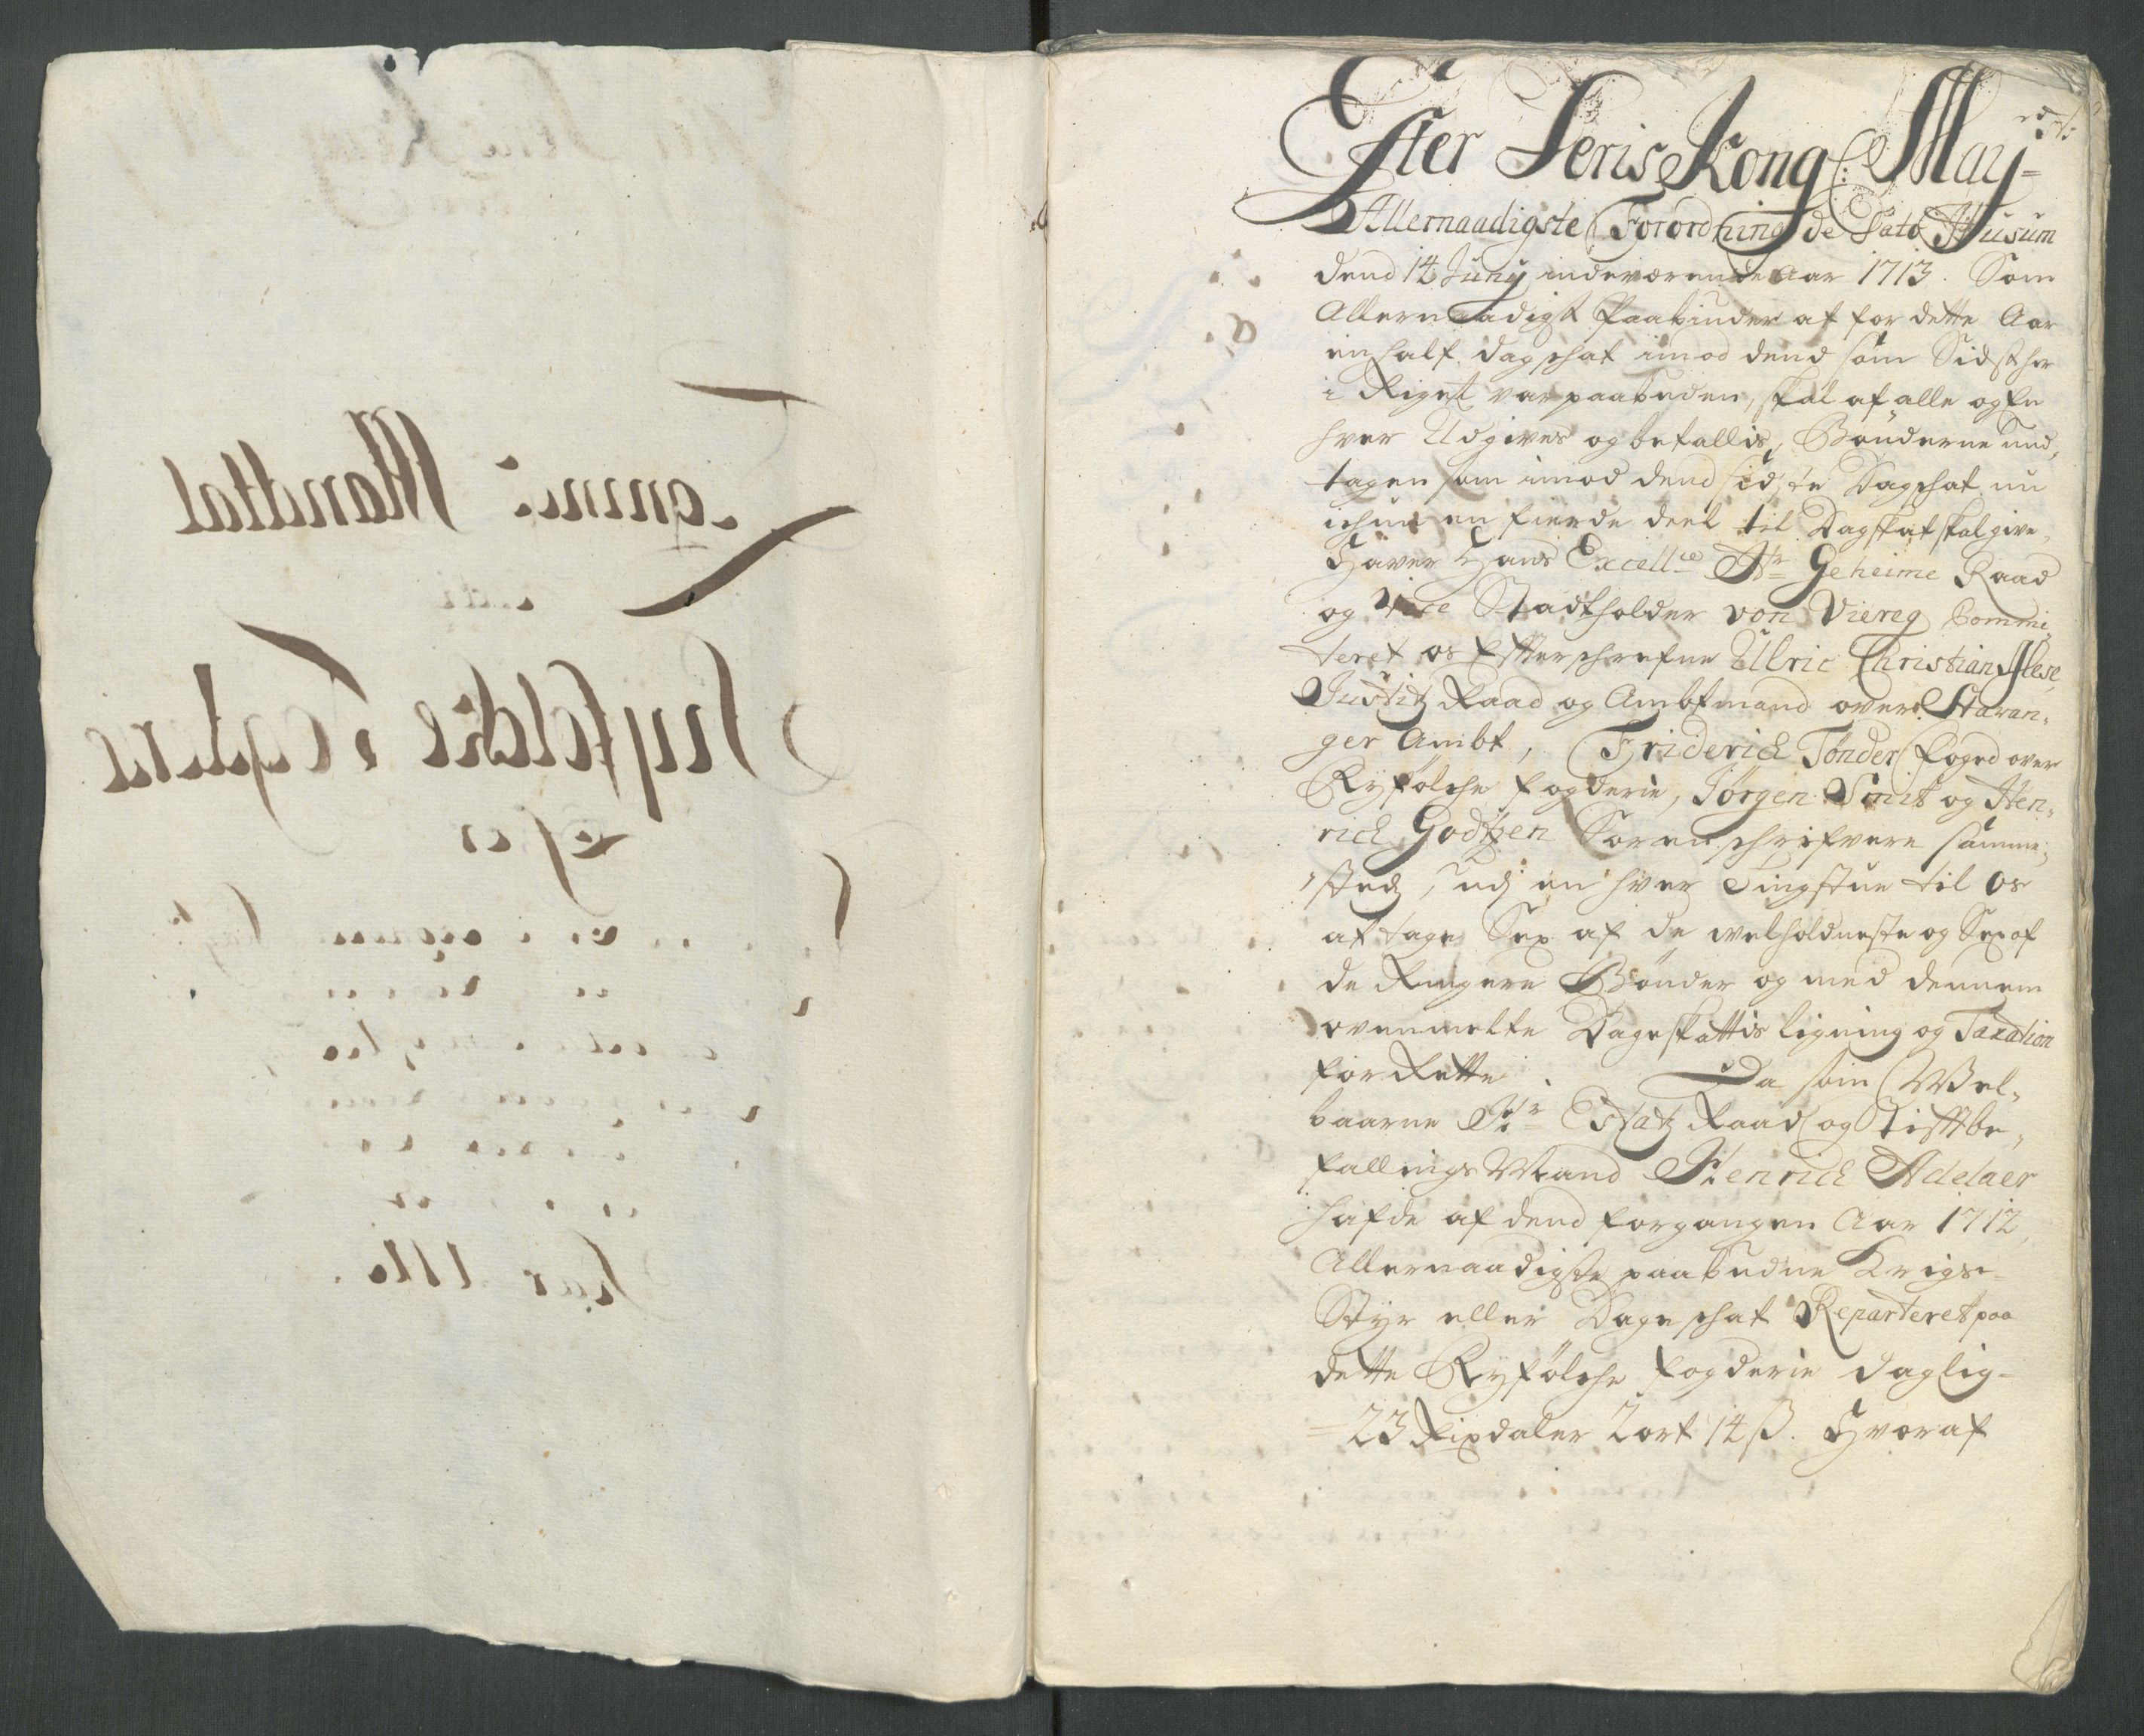 Efter Deris Kong: May=ts
Allernaadigste Forordning de Dato Husum
dend 14 Juny indeværende Aar 1713. Som
Allernaadigst Paabiuder at for dette Aar
en half dagschat imod dend som Sidst her
i Riget var paabuden, skal af alle og En
hver Udgives og betallis, Bønderne und,
tagen som imod dend sidste Dagschat nu
ichun en fierde deel til Dagskat skal give,
Haver Hans Excellce Hr Geheime Raad
og Vice Stadtholder von Viereg Commi,
teret os Efterschrefne Ulric Christian
Justitz Raad og Ambtmand over Stavan,
ger Ambt, Friderich Tønder foged over
Ryfølche fogderie, Jørgen Smit og Hen,
rich Godtzen Sorenschrifvere samme,
sted, udj en hver Tingstue til os
at tage Sex af de welholdneste og Sex af
de Ringere Bønder og med dennem
ovenmelte Dageskattis ligning og Taxation
forrette. Da som Wel,
baarne Hr Etatz Raad og Stiftbe,
fallings Mand Henrich Adelaer
hafde af dend forgangen Aar 1712,
Allernaadigste paabudne Krigs=
Styr eller Dageschat Reparteret paa
dette Ryfølche fogderie daglig=
=23 Rixdaler 2 ort 14 ß. Hvoraf